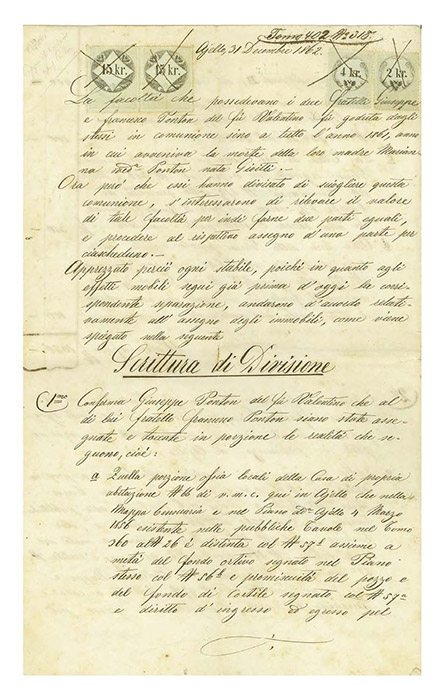 Tomo 402 N. 315.
Ajello, 31 Decembre 1862.
15 kr.
15 kr.
4 kr.
2 kr.
La facoltà che possedevano i due fratelli Giuseppe
e Francesco Ponton del fù Valentino fù goduta dagli
stessi in comunione sino a tutto l'anno 1861, anno
in cui avveniva la morte della loro madre Marian
na Ponton nata
Ora però che essi hanno divisato di sciogliere questa
comunione, s'interessarono di rilevare il valore
di tale facoltà per indi farne due parti eguali,
e procedere al rispettivo assegno d'una parte per
ciascheduno.—
Apprezzato perciò ogni stabile, poichè in quanto agli
effetti mobili seguì già prima d'oggi la corri-
spondente separazione, andarono d'accordo relati-
vamente all'assegno degli immobili, come viene
spiegato nella seguente
Scrittura di Divisione
1mo Conferma Giuseppe Ponton del fù Valentino che al
di lui fratello Francesco Ponton siano state asse-
gnate e toccate in porzione le realità che se-
guono, cioè:
a Quella porzione ossia locali della Casa di propria
abitazione N 66 di n.m.c. qui in Ajello che nella
Mappa Censuaria e nel Piano Ajello 4 Marzo
1856 esistente nelle pubbliche Tavole nel Tomo
360 al N 26 è distinta col N 57 assieme a
metà del fondo ortivo signato nel Piano
stesso col N 56 e promiscuità del pozzo e
del fondo di Cortile segnato col N 57
e diritto d'ingresso ed egresso pel